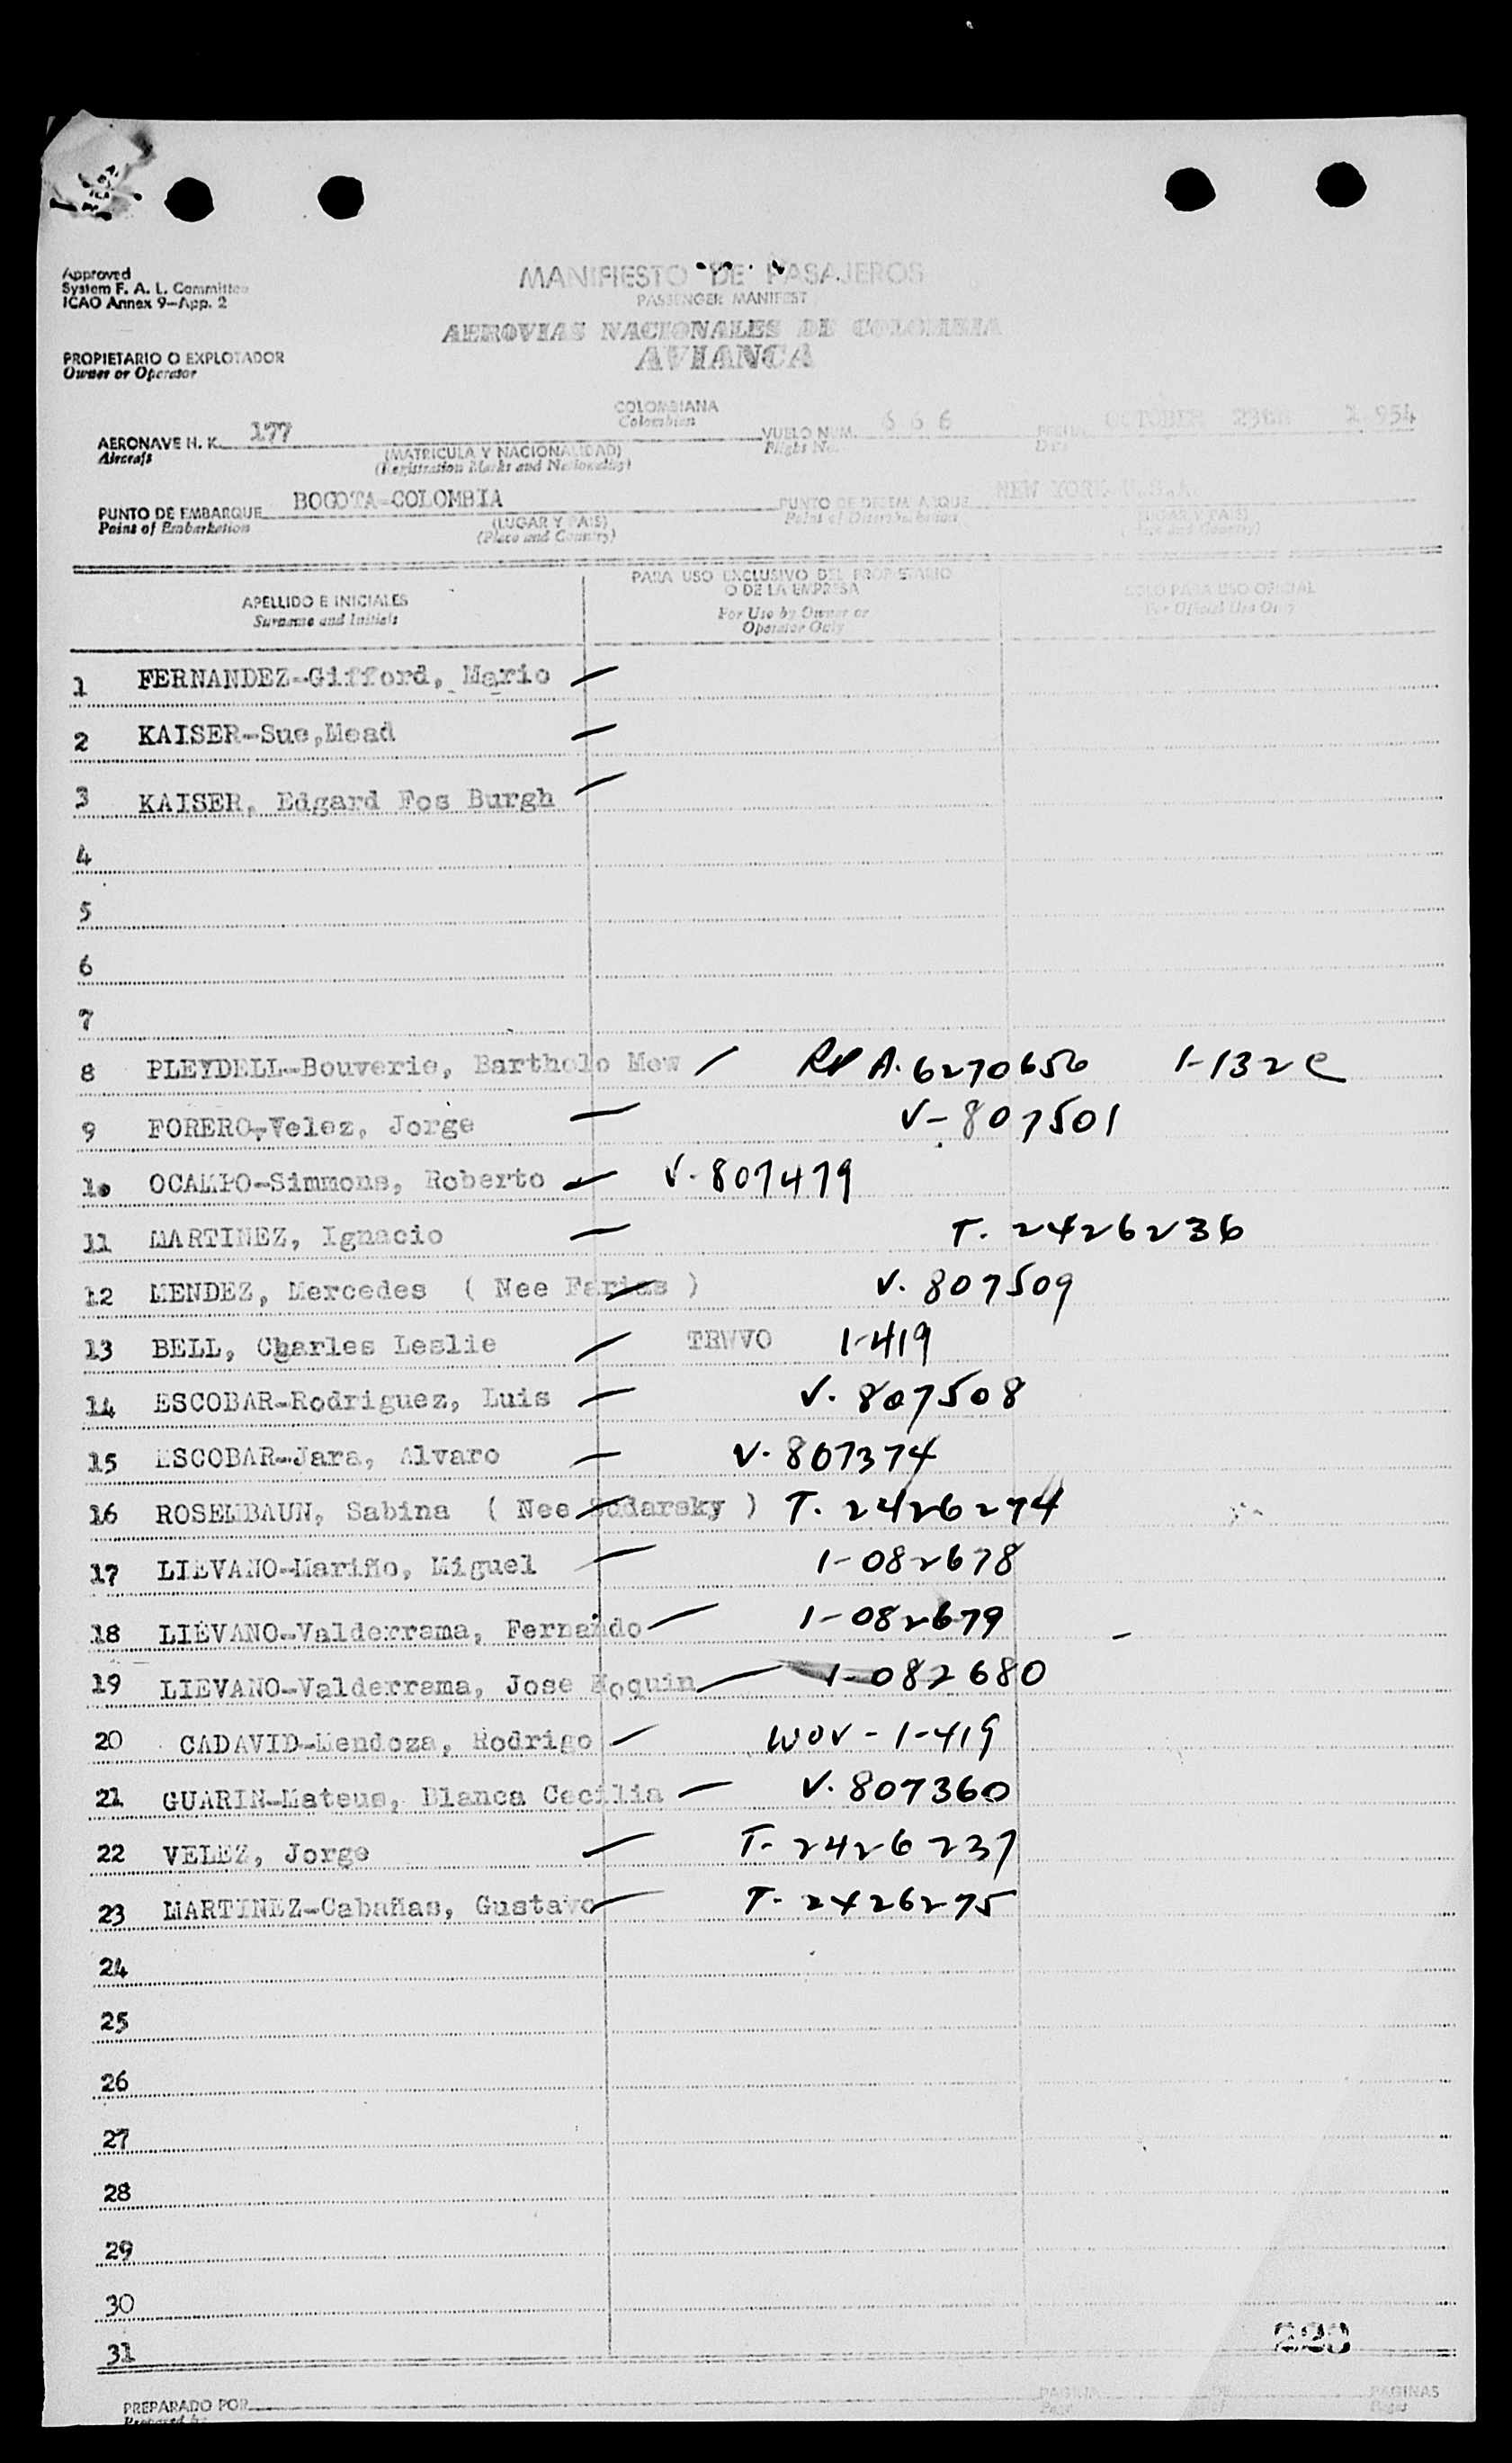 Approved
System F. A. L. Committee
ICAO Annex 9-App. 2
MANIFIESTO DE PASAJEROS
PASSENGER MANIFEST
AEROVIAS NACIONALES DE COLOMBIA
AVIANCA
PROPIETARIO O EXPLOTADOR
Owner or Operator
COLOMBIANA
Colombian
AERONAVE H. K. 177 VUELO NUM. 6 6 6 FECHA OCTOBER 23th 1.954
Aircraft (MATRICULA Y NACIONALIDAD) Flight No. Date
(Registration Marks and Nationality)
PUNTO DE EMBARQUE BOGOTA-COLOMBIA PUNTO DE DESEMBARQUE NEW YORK-U.S.A.
Point of Embarkation (LUGAR Y PAIS) Point of Disembarkation (LUGAR Y PAIS)
(Place and Country) (Place and Country)
APELLIDO E INICIALES PARA USO EXCLUSIVO DEL PROPIETARIO SOLO PARA USO OFICIAL
Surname and Initials O DE LA EMPRESA For Official Use Only
For Use by Owner or
Operator Only
1 FERNANDEZ-Gifford, Mario
2 KAISER-Sue,Mead
3 KAISER, Edgard Fos Burgh
4
5
6
7
8 PLEYDELL-Bouverie, Bartholo Mew A-6270656 1-132c
9 FORERO-Velez, Jorge V-807501
10 OCAMPO-Simmons, Roberto V-807479
11 MARTINEZ, Ignacio T-2426236
12 MENDEZ, Mercedes ( Nee Farias ) V-807509
13 BELL, Charles Leslie TRWVO 1-419
14 ESCOBAR-Rodriguez, Luis V-807508
15 ESCOBAR-Jara, Alvaro V-807374
16 ROSEMBAUN, Sabina ( Nee ) T-2426274
17 LIEVANO-Mariño, Miguel 1-082678
18 LIEVANO-Valderrama, Fernando 1-082679
19 LIEVANO-Valderrama, Jose 1-082680
20 CADAVID-Mendoza, Rodrigo WOV-1-419
21 GUARIN-Mateus, Blanca Cecilia V-807360
22 VELEZ, Jorge T-2426237
23 MARTINEZ-Cabañas, Gustavo T-2426275
24
25
26
27
28
29
30
31
PREPARADO POR PAGINA DE PAGINAS
Prepared by Page of Pages